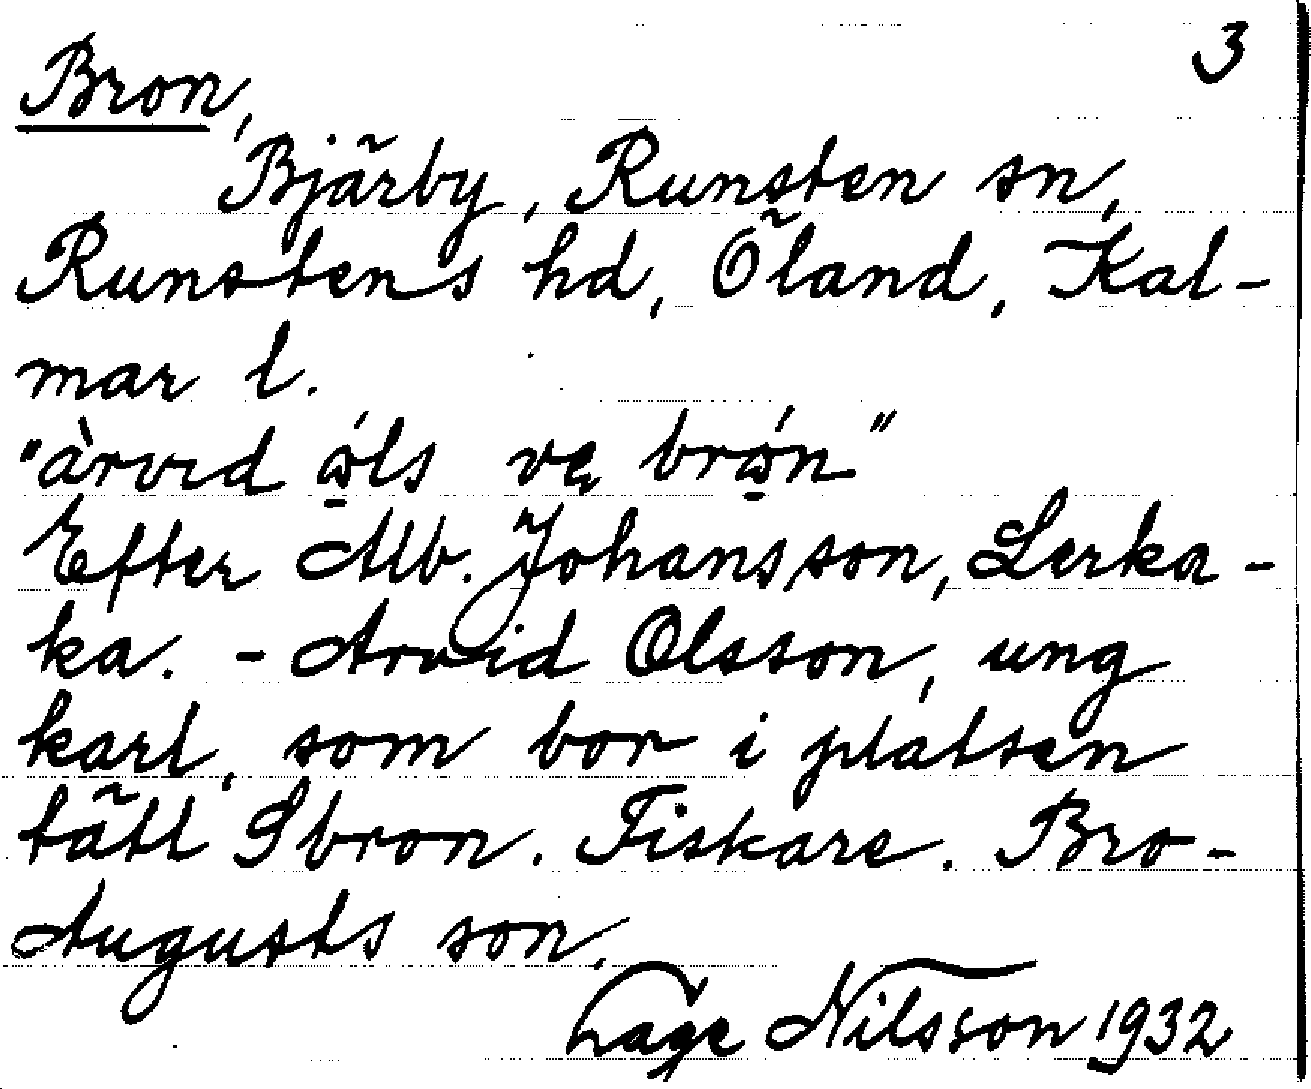 3
Bron,
Bjärby, Runsten sn,
Runstens hd, Öland, Kal-
mar l.
"àrvɩd ó̱ls vę bró̱n"
Efter Alb. Johansson, Lerka-
ka. - Arvid Olsson, ung
karl, som bor i platsen
tätt Ibron. Fiskare. Bro-
Augusts son.
Lage Nilsson 1932